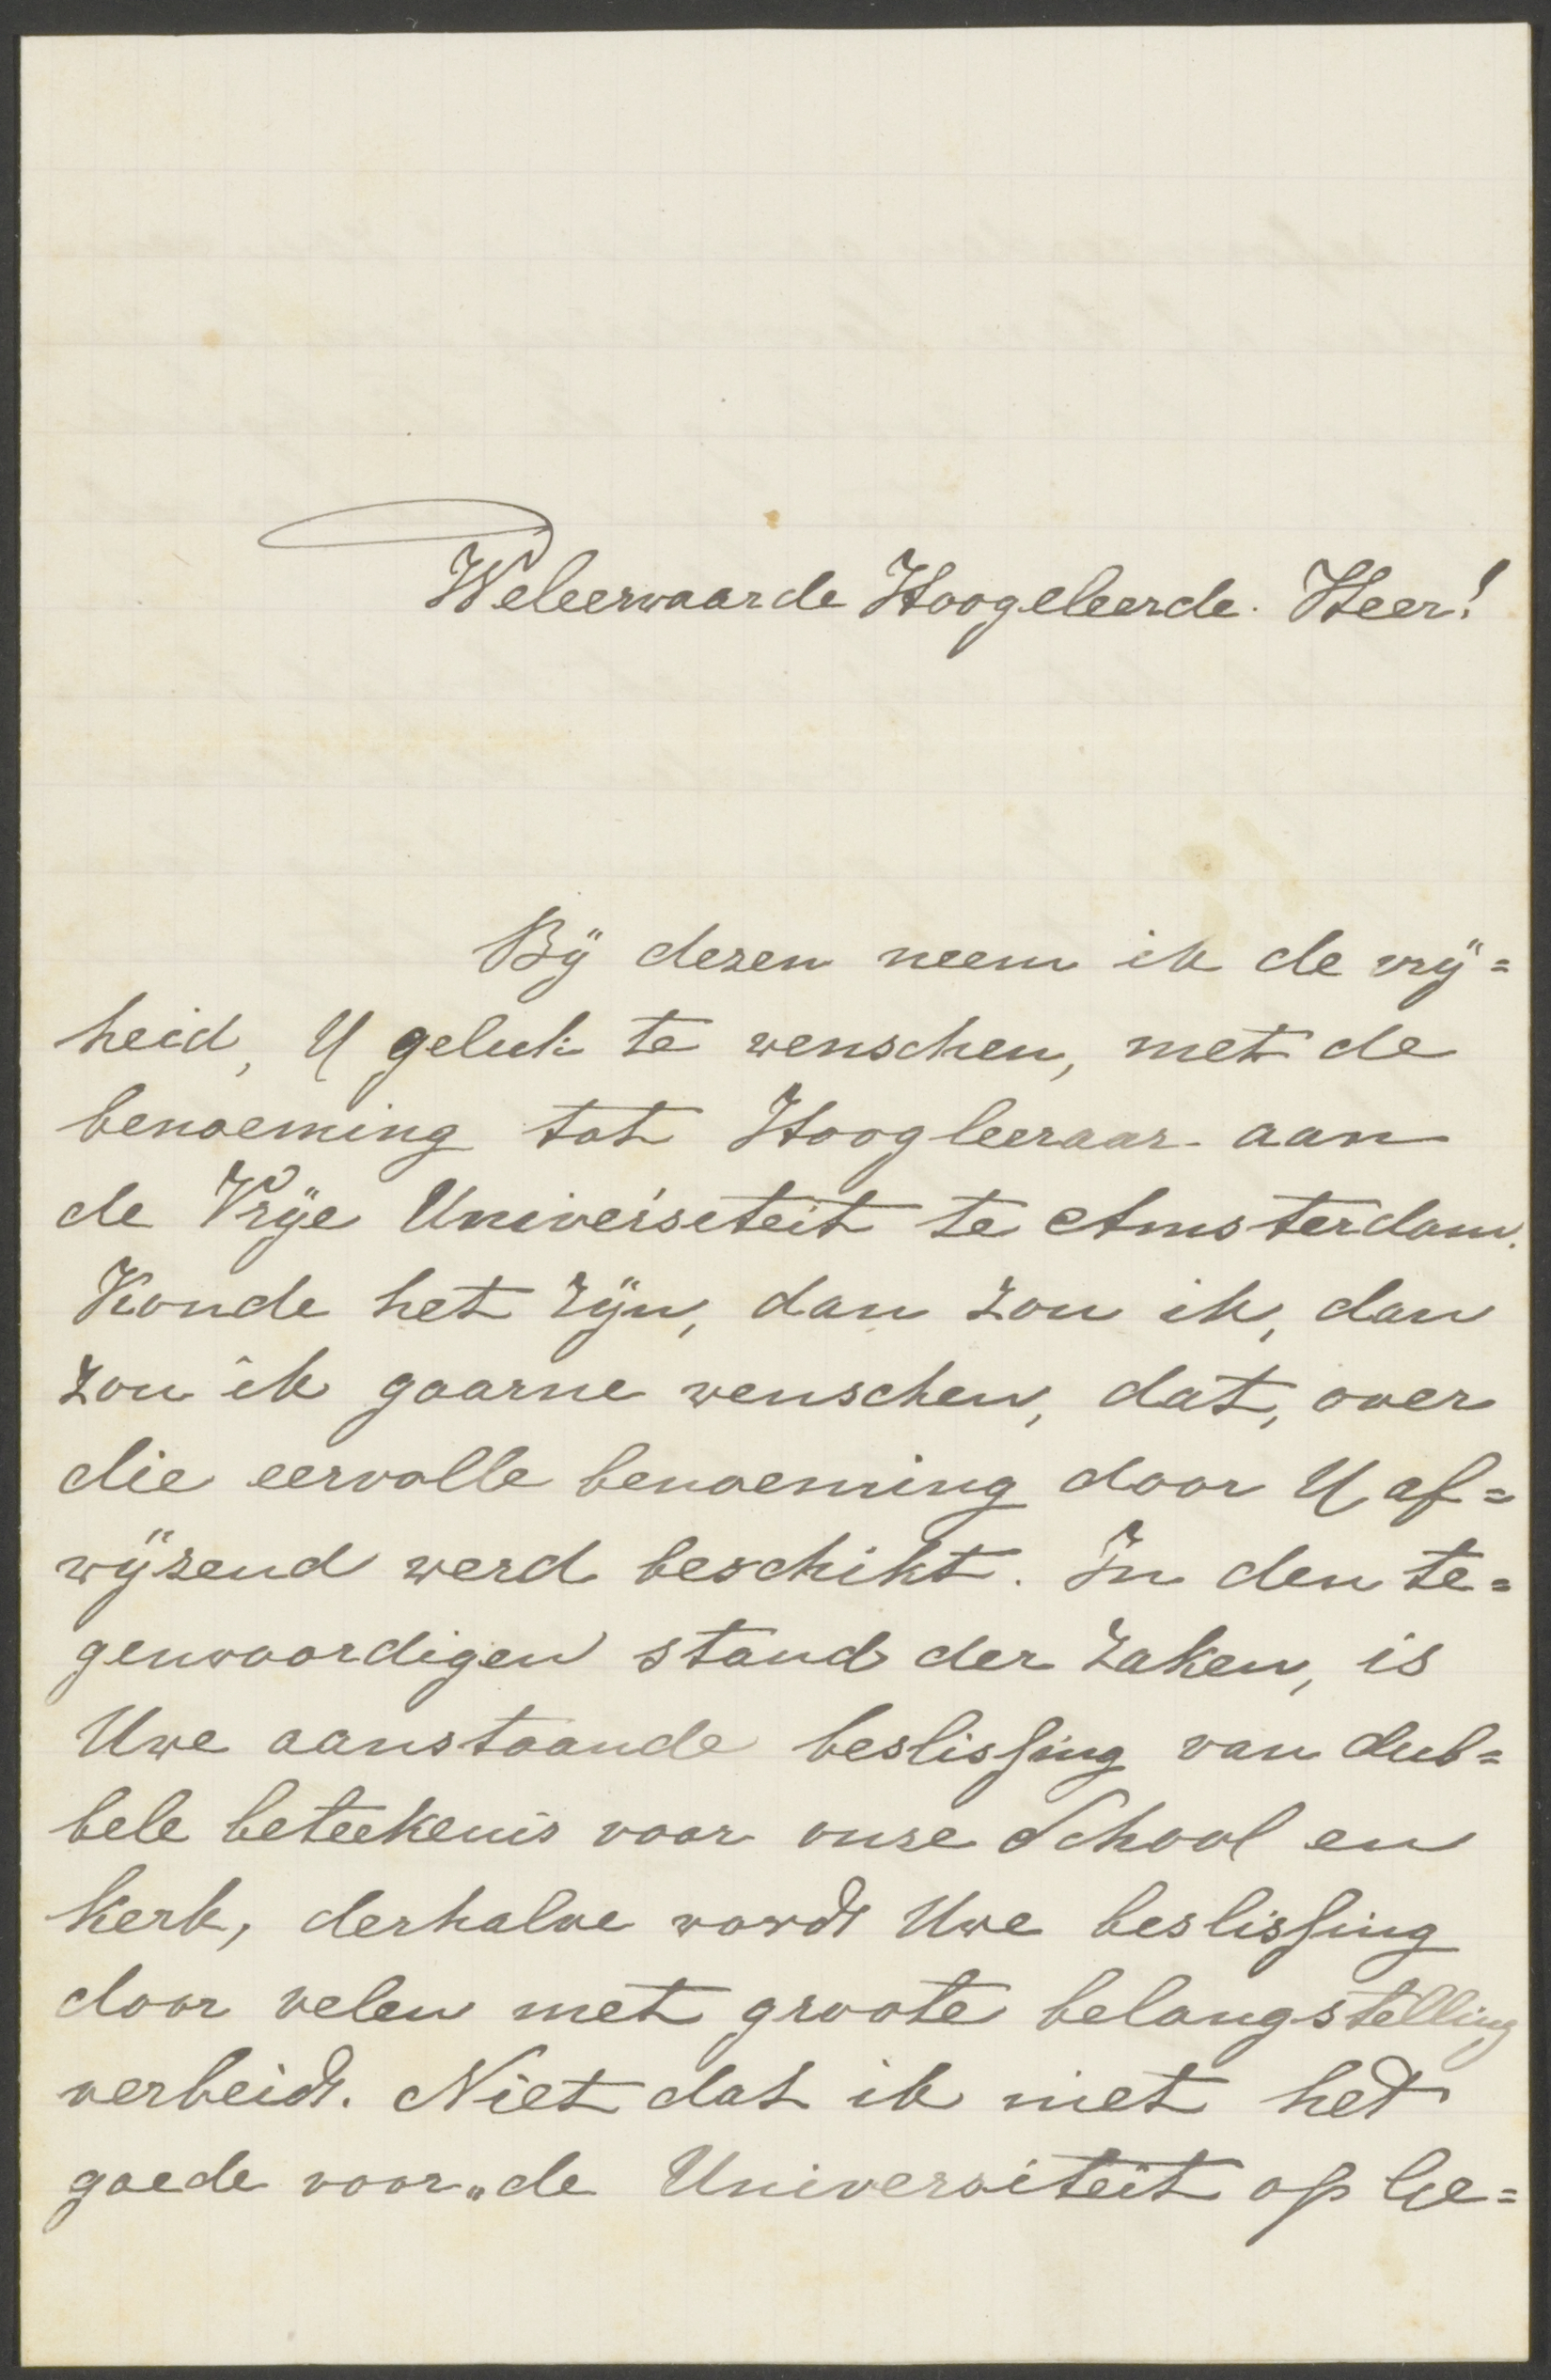 Weleerwaarde Hoogeleerde Heer!
Bÿ dezen neem ik de vrÿ=
heid, U geluk te wenschen, met de
benoeming tot Hoogleeraar aan
de Vrÿe Universiteit te Amsterdam.
Konde het zÿn, dan zou ik, dan
zou ik gaarne wenschen, dat, over
die eervolle benoeming door U af=
wÿzend werd beschikt. In den te=
genwoordigen stand der zaken, is
Uwe aanstaande beslissing van dub=
bele beteekenis voor onze School en
Kerk, derhalve wordt Uwe beslissing
door velen met groote belangstelling
verbeidt. Niet dat ik niet het
goede voor „de Universiteit op Ge=